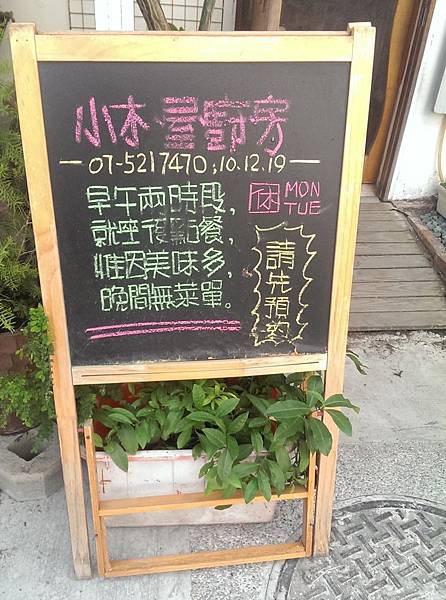 小木屋廚房
07-5217470;10.12.19
早午兩時段,
就坐後點餐,
惟因美味多,
晚間無菜單。
休 MON
TUE
請先預約